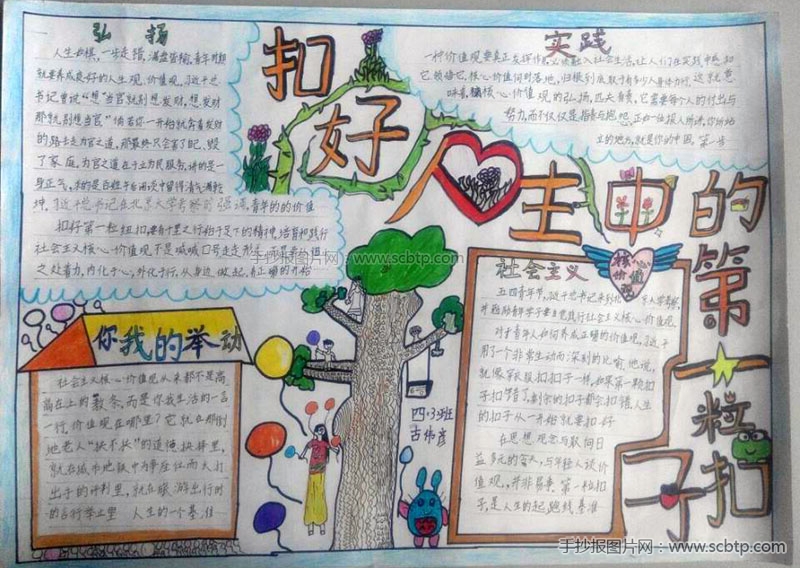 弘扬
人生如棋,一步走错,满盘皆输,青年时期
就要养成良好的人生观,价值观。习近平总
书记曾说"想当官就别想发财,想发财
那就别想当官"倘若你一开始就奔着发财
的路去走为官之道,那最终只会害了自己,毁
了家庭,为官之道在于立为民服务,讲的是一
身正气,
习近平总书记在北京大学考察时强调,青年的价值
扣好第一粒纽扣,要有千里之行始于足下的精神,培育和践行
社会主义核心价值观不是喊喊口号走走形式,而是
之处着力,内化于心,外化于行,从身边做起,
扣好人生中的第一粒扣子
实践
一种价值观要真正发挥作用,必须融入社会生活,让人们在实践中感知
它,领悟它,核心价值何时落地,归根到底取决于有多少人身体力行,这就意
味着,核心价值观的弘扬,匹夫有责,它需要每个人的付出与
努力,而不仅仅是指责与抱怨,正如一位报人所讲,你所站
立的地方,就是你的中国,第一步
核心价值观
社会主义
五四青年节,习近平总书记来到北京大学考察,
并勉励青年学子要自觉践行社会主义核心价值观,
对于青年人如何养成正确的价值观,习近平
用了一个非常生动而深刻的比喻,他说,
就像穿衣服扣扣子一样,如果第一颗扣
子扣错了,剩余的扣子都会扣错,人生
的扣子从一开始就要扣好
在思想观念与取向日
益多元的当今,与年轻人谈价
值观,并非易事,第一粒扣
子,是人生的起跑线,基准
你我的举动
社会主义核心价值观从来都不是高
高在上的教条,而是你我生活的一言
一行,价值观在哪里?它就在那倒
地老人"扶不扶"的道德抉择里,
就在城市地铁中
出手的评判里,就在旅游出行时
的言行举止里 人生的一个基准
四·3班
古伟彦
手抄报图片网 www.scbtp.com
手抄报图片网:www.scbtp.com